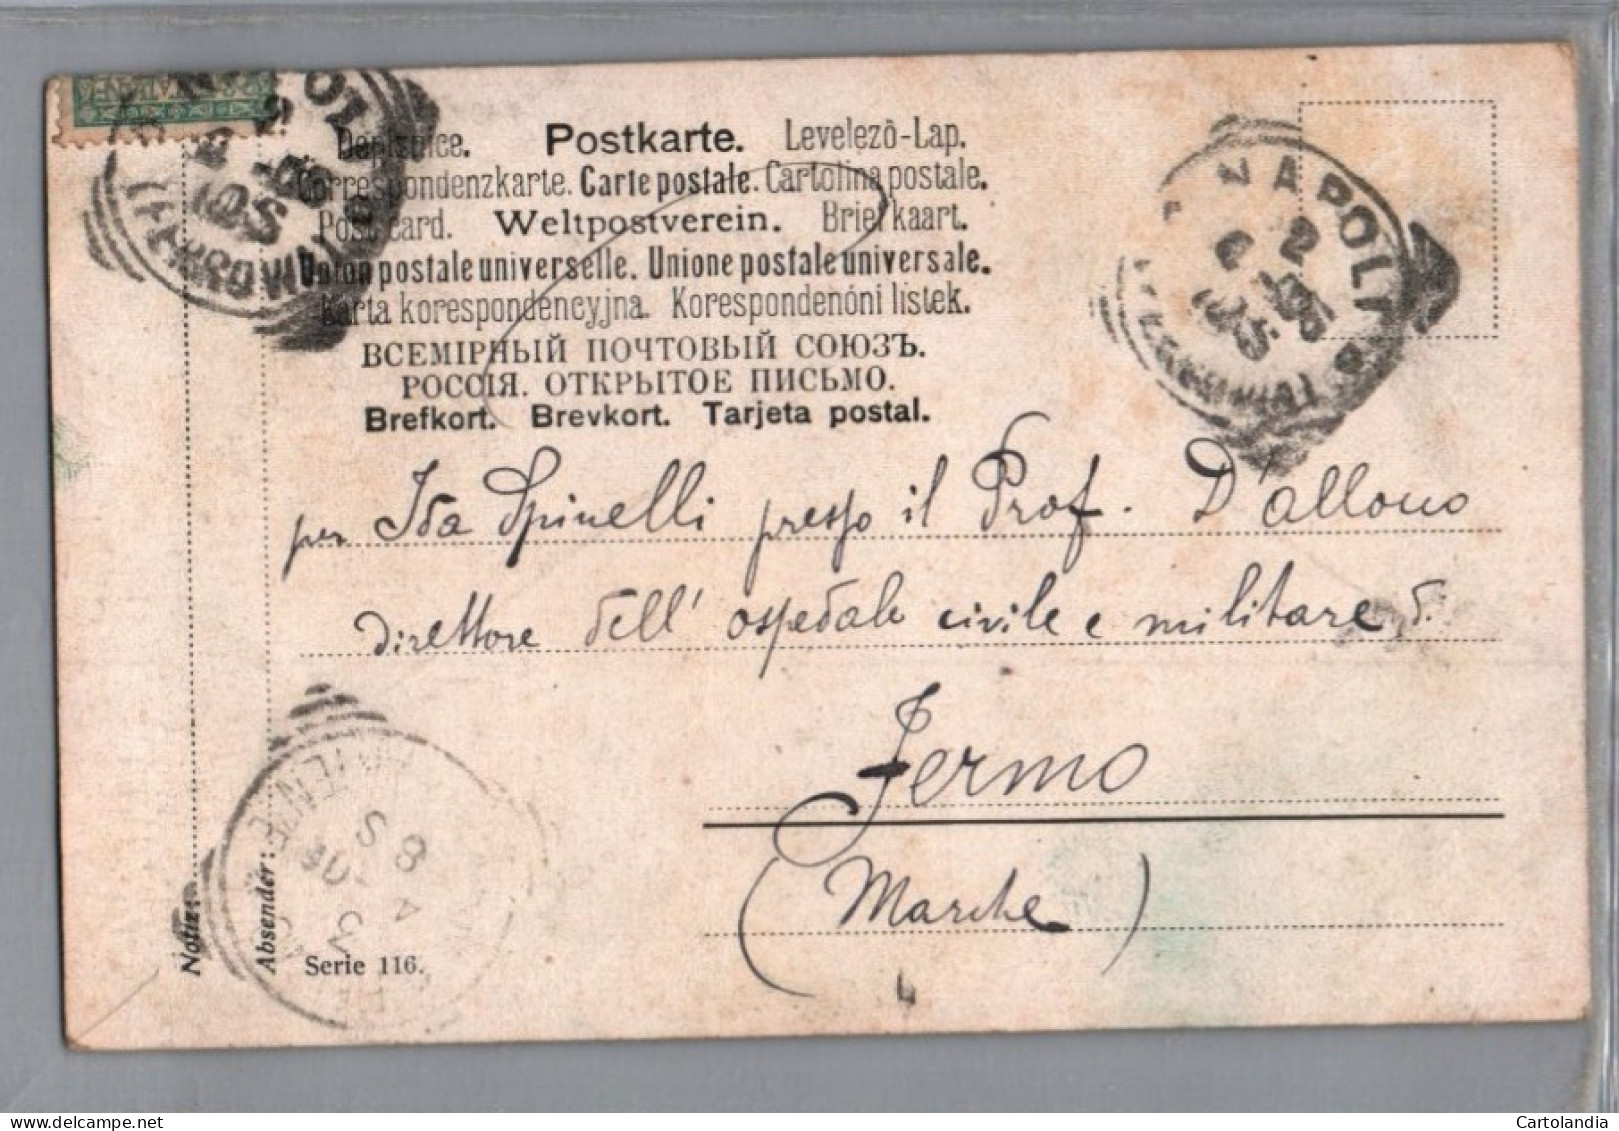 Dopisnice. Postkarte. Levelezö-Lap.
Correspondenzkarte. Carte postale. Cartolina postale.
Post card. Weltpostverein. Briefkaart.
Union postale universelle. Unione postale universale.
Karta korespondencyjna. Korespondenčni listek.
ВСЕМІРНЫЙ ПОЧТОВЫЙ СОЮЗЪ.
РОССІЯ. ОТКРЫТОЕ ПИСЬМО.
Brefkort. Brevkort. Tarjeta postal.
NAPOLI
per Ida Spinelli presso il Prof. D'allono
direttore dell' ospedale civile e militare di
Fermo
(Marche)
Notiz:
Absender:
Serie 116.
Cartolandia